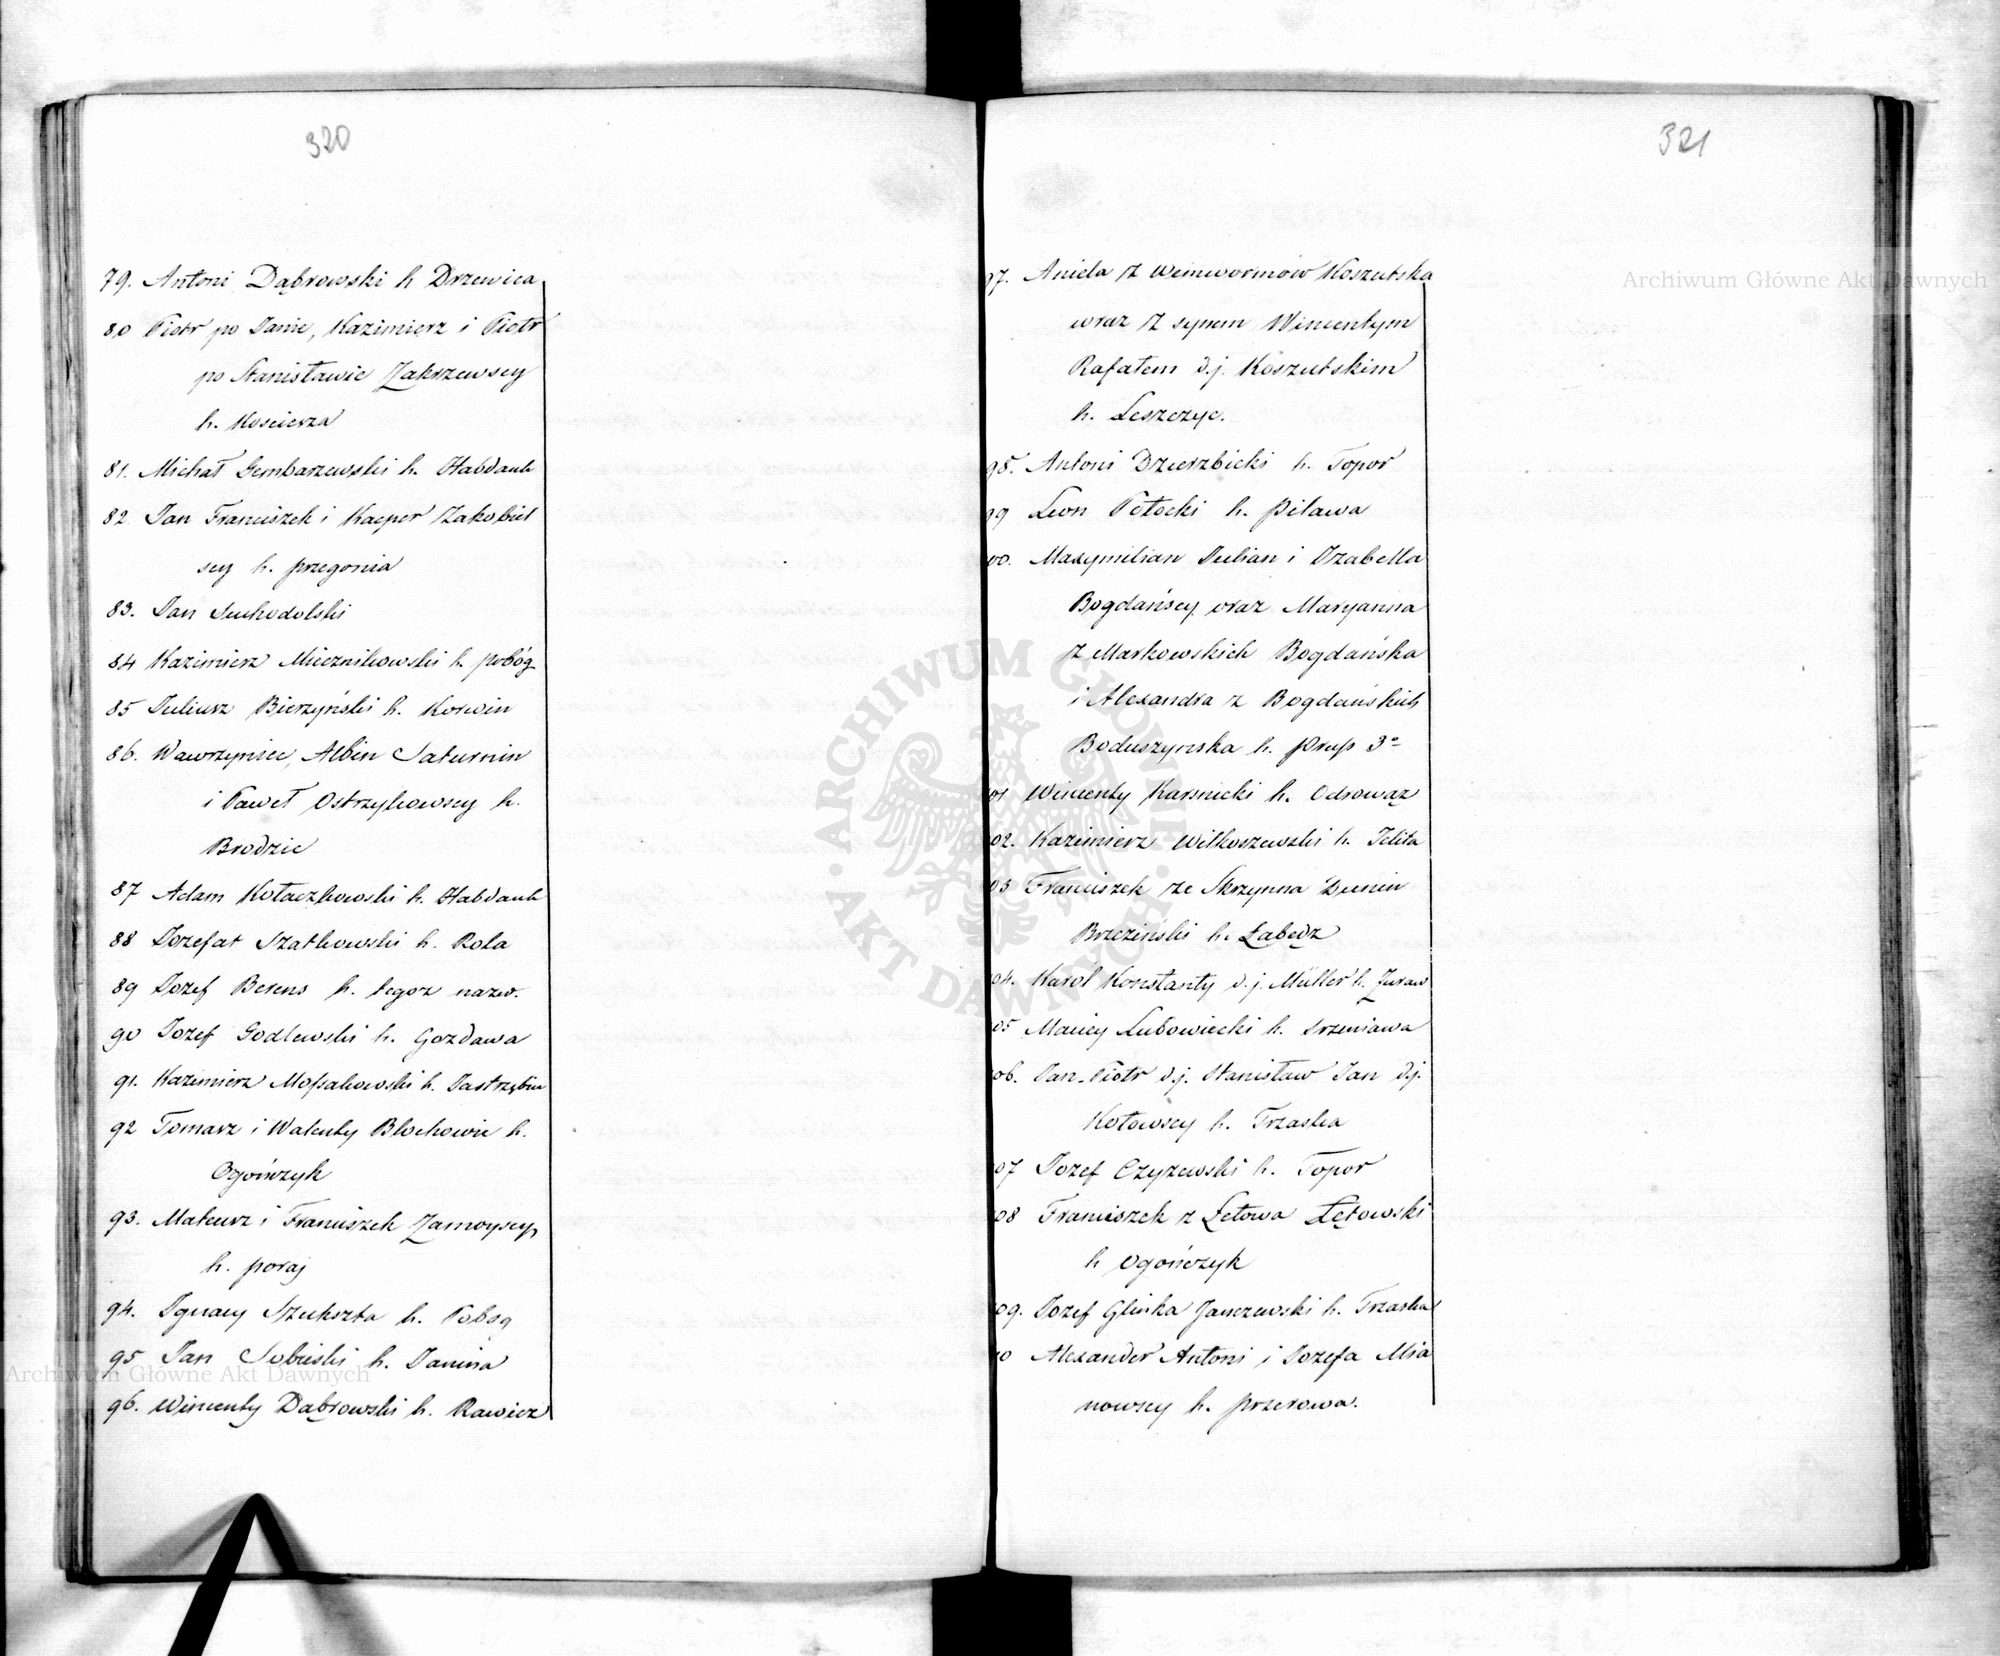 320
79. Antoni Dąbrowski h Drzewica
80 Piotr po Janie, Kazimierz i Piotr
po Stanisławie Zakrzewscy
h. Kościerza
81. Michał Gembarzewski h. Habdank
82 Jan Franciszek i Kacper Zakobiel
scy h. przegonia
83. Jan Suchodolski
84 Kazimierz Miecznikowski h. pobóg
85 Juliusz Bierzyński h. Korwin
86. Wawrzyniec, Albin Saturnin
i Paweł Ostrzykowscy h.
Brodzic
87 Adam Kołaczkowski h. Habdank
88 Jozefat Szatkowski h. Rola
89 Jozef Berens h. tegoz nazw.
90 Jozef Godlewski h. Gozdawa
91. Kazimierz Mossakowski h. Jastrzębiec
92 Tomasz i Walenty Błochowie h.
Ogończyk
93. Mateusz i Franciszek Zamoyscy
h. poraj
94. Ignacy Szukszta h. Pobog
95 Jan Sobieski h. Janina
96. Wincenty Dąbrowski h. Rawicz
321
97. Aniela z Koszutska
wraz z synem Wincentym
Rafałem d.j. Koszutskim
h. Leszczyc.
98. Antoni Dzierzbicki h. Topor
99 Leon Potocki h. pilawa
00. Maxymilian Julian i Izabella
Bogdańscy, oraz Maryanna
z Markowskich Bogdańska
i Alexandra z Bogdańskich
Boduszynska h. Pruss 3º
01 Wincenty Karsnicki h. Odrowąz
02. Kazimierz Wilkoszewski h. Jelita
03 Franciszek ze Skrzynna Dunin
Brzeziński h. Łabędz
04. Karól Konstanty d.j. Müller h. Zuraw
05 Maciey Lubowiecki h. Srzeniawa
06. Jan-Piotr d.j. Stanisław Jan d.j.
Kotowscy h. Trzaska
07 Jozef Czyzewski h. Topor
08 Franciszek z Łętowa Łętowski
h Ogończyk
09. Jozef Glinka Janczewski h. Trzaska
10 Alexander Antoni i Jozefa Mia
nowscy h. przerowa.
Archiwum Główne Akt Dawnych
Archiwum Główne Akt Dawnych
ARCHIWUM GŁÓWNE AKT DAWNYCH